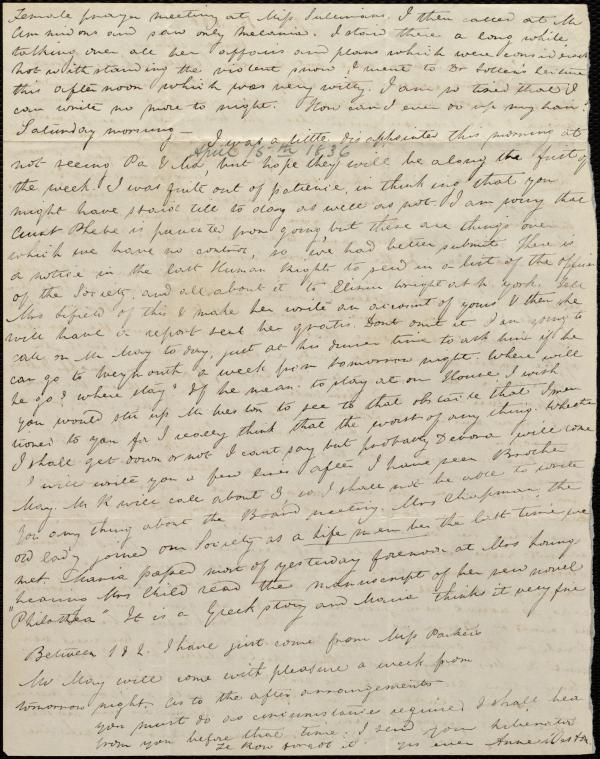 Female prayer meeting at Miss Sullivans. I then called at Mr
Ammidons and saw only Melania. I staid there a long while
talking over all her affairs and plans which were considerable
notwithstanding the violent snow. I went to Dr Follen's lecture
this afternoon which was very witty. I am so tired that I
can write no more to night. How can I ever do up my hair?
Saturday morning — I was a little disappointed this morning at
April 15th 1836
not seeing Pa & Ma, but hope they will be along the first of
the week. I was quite out of patience, in thinking that you
might have staid till to day as well as not. I am sorry that
Aunt Phebe is prevented from going, but these are things over
which we have no control, so we had better submit. There is
a notice in the last Human Rights to send in a list of the officers
of the Society, and all about it to Elizur Wright at N. York. Tell
Mrs Fifield of this & make her write an account of yours & then she
will have a report sent her gratis. Dont omit it. I am going to
call on Mr May to day, just at his dinner time to ask him if he
can go to Weymouth a week from tomorrow night. Where will
he go? where stay? If he means to stay at our House I wish
you would stir up Mr Weston to see to that obstacle that I men
tioned to you for I really think that the worst of any thing. Whether
I shall get down or not I cant say but probably Debora will come
I will write you a few lines after I have seen Brother
May. Mr R will call about 3, so I shall not be able to write
you any thing about the Board meeting. Mrs Chapman, the
old lady joined our Society as a life member the last time we
met. Maria passed most of yesterday forenoon at Mrs Lorings
"hearing Mrs Child read the manuscript of her new novel
Philothea". It is a Greek story and Maria thinks it very fine
Between 1 & 2. I have just come from Miss Parkers
Mr May will come with pleasure a week from
tomorrow night. As to the after arrangements
you must do as circumstances required. I shall hear
from you before that time. I send your
forgot it yrs ever Anne Weston